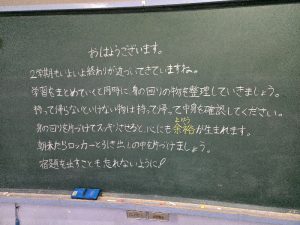 おはようございます。
2学期もいよいよ終わりが近づいてきていますね。
学習をまとめていくと同時に身の回りの物を整理していきましょう。
持って帰らないといけない物は持って帰って中身を確認してください。
身の回りを片づけてスッキリさせると、心にも余裕が生まれます。
よゆう
朝来たらロッカーと引き出しの中を片づけましょう。
宿題を出すことも忘れないように!